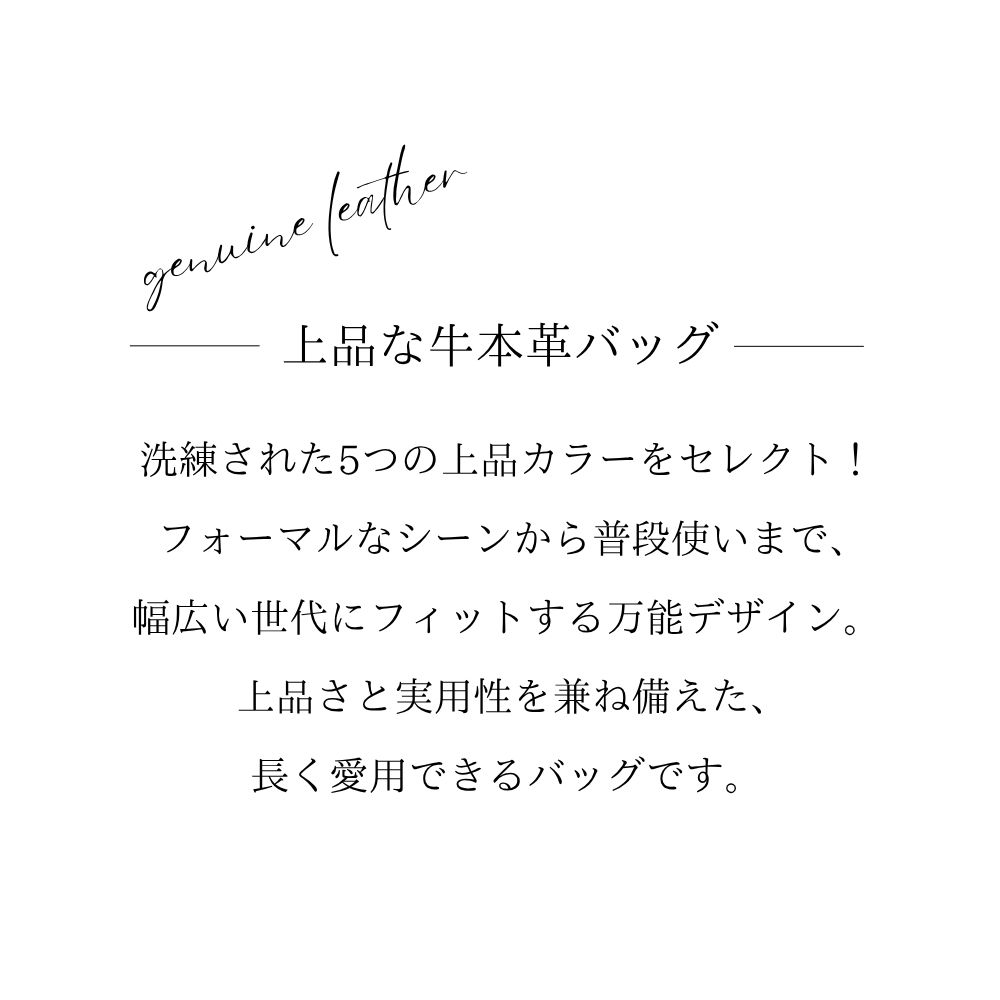 genuine leather
上品な牛本革バッグ
洗練された5つの上品カラーをセレクト！
フォーマルなシーンから普段使いまで、
幅広い世代にフィットする万能デザイン。
上品さと実用性を兼ね備えた、
長く愛用できるバッグです。